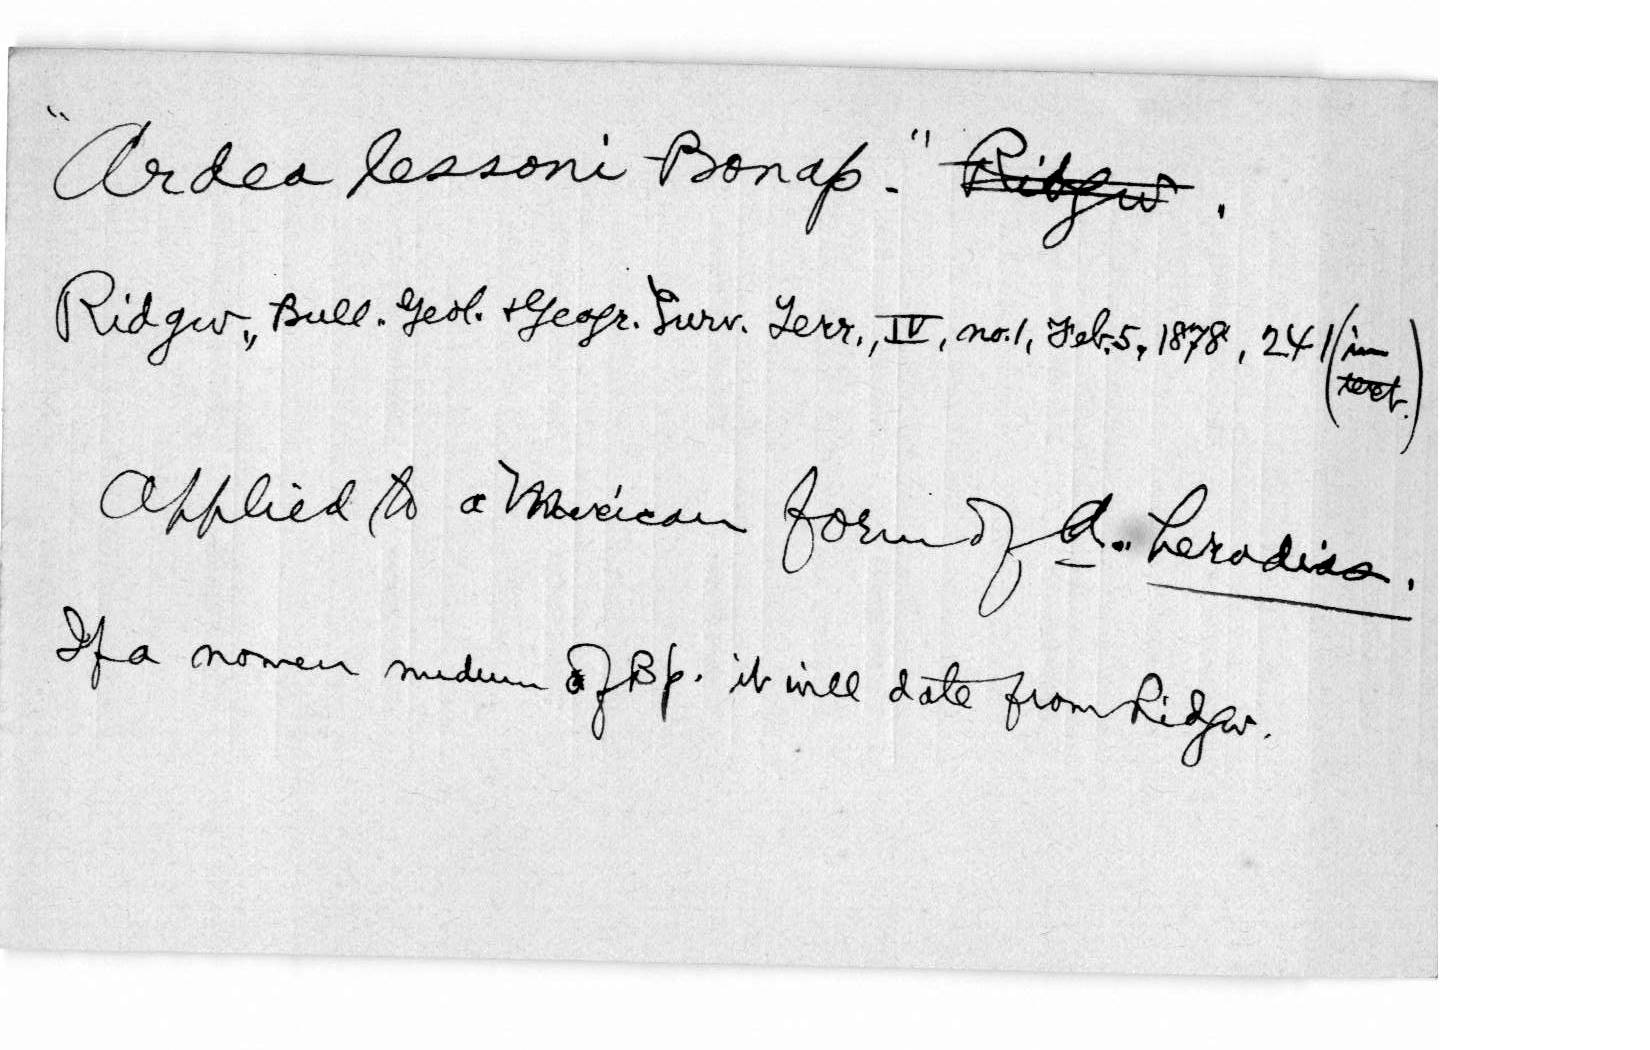 "Ardea lessoni Bonap." Ridgw.
Ridgw., Bull. Geol. + Geogr. Surv. Terr., IV, no. 1, Feb. 5, 1878, 241 (in text.)
Applied to a Mexican form of A. herodias.
If a nomen nudum of Bp. it will date from Ridgw.